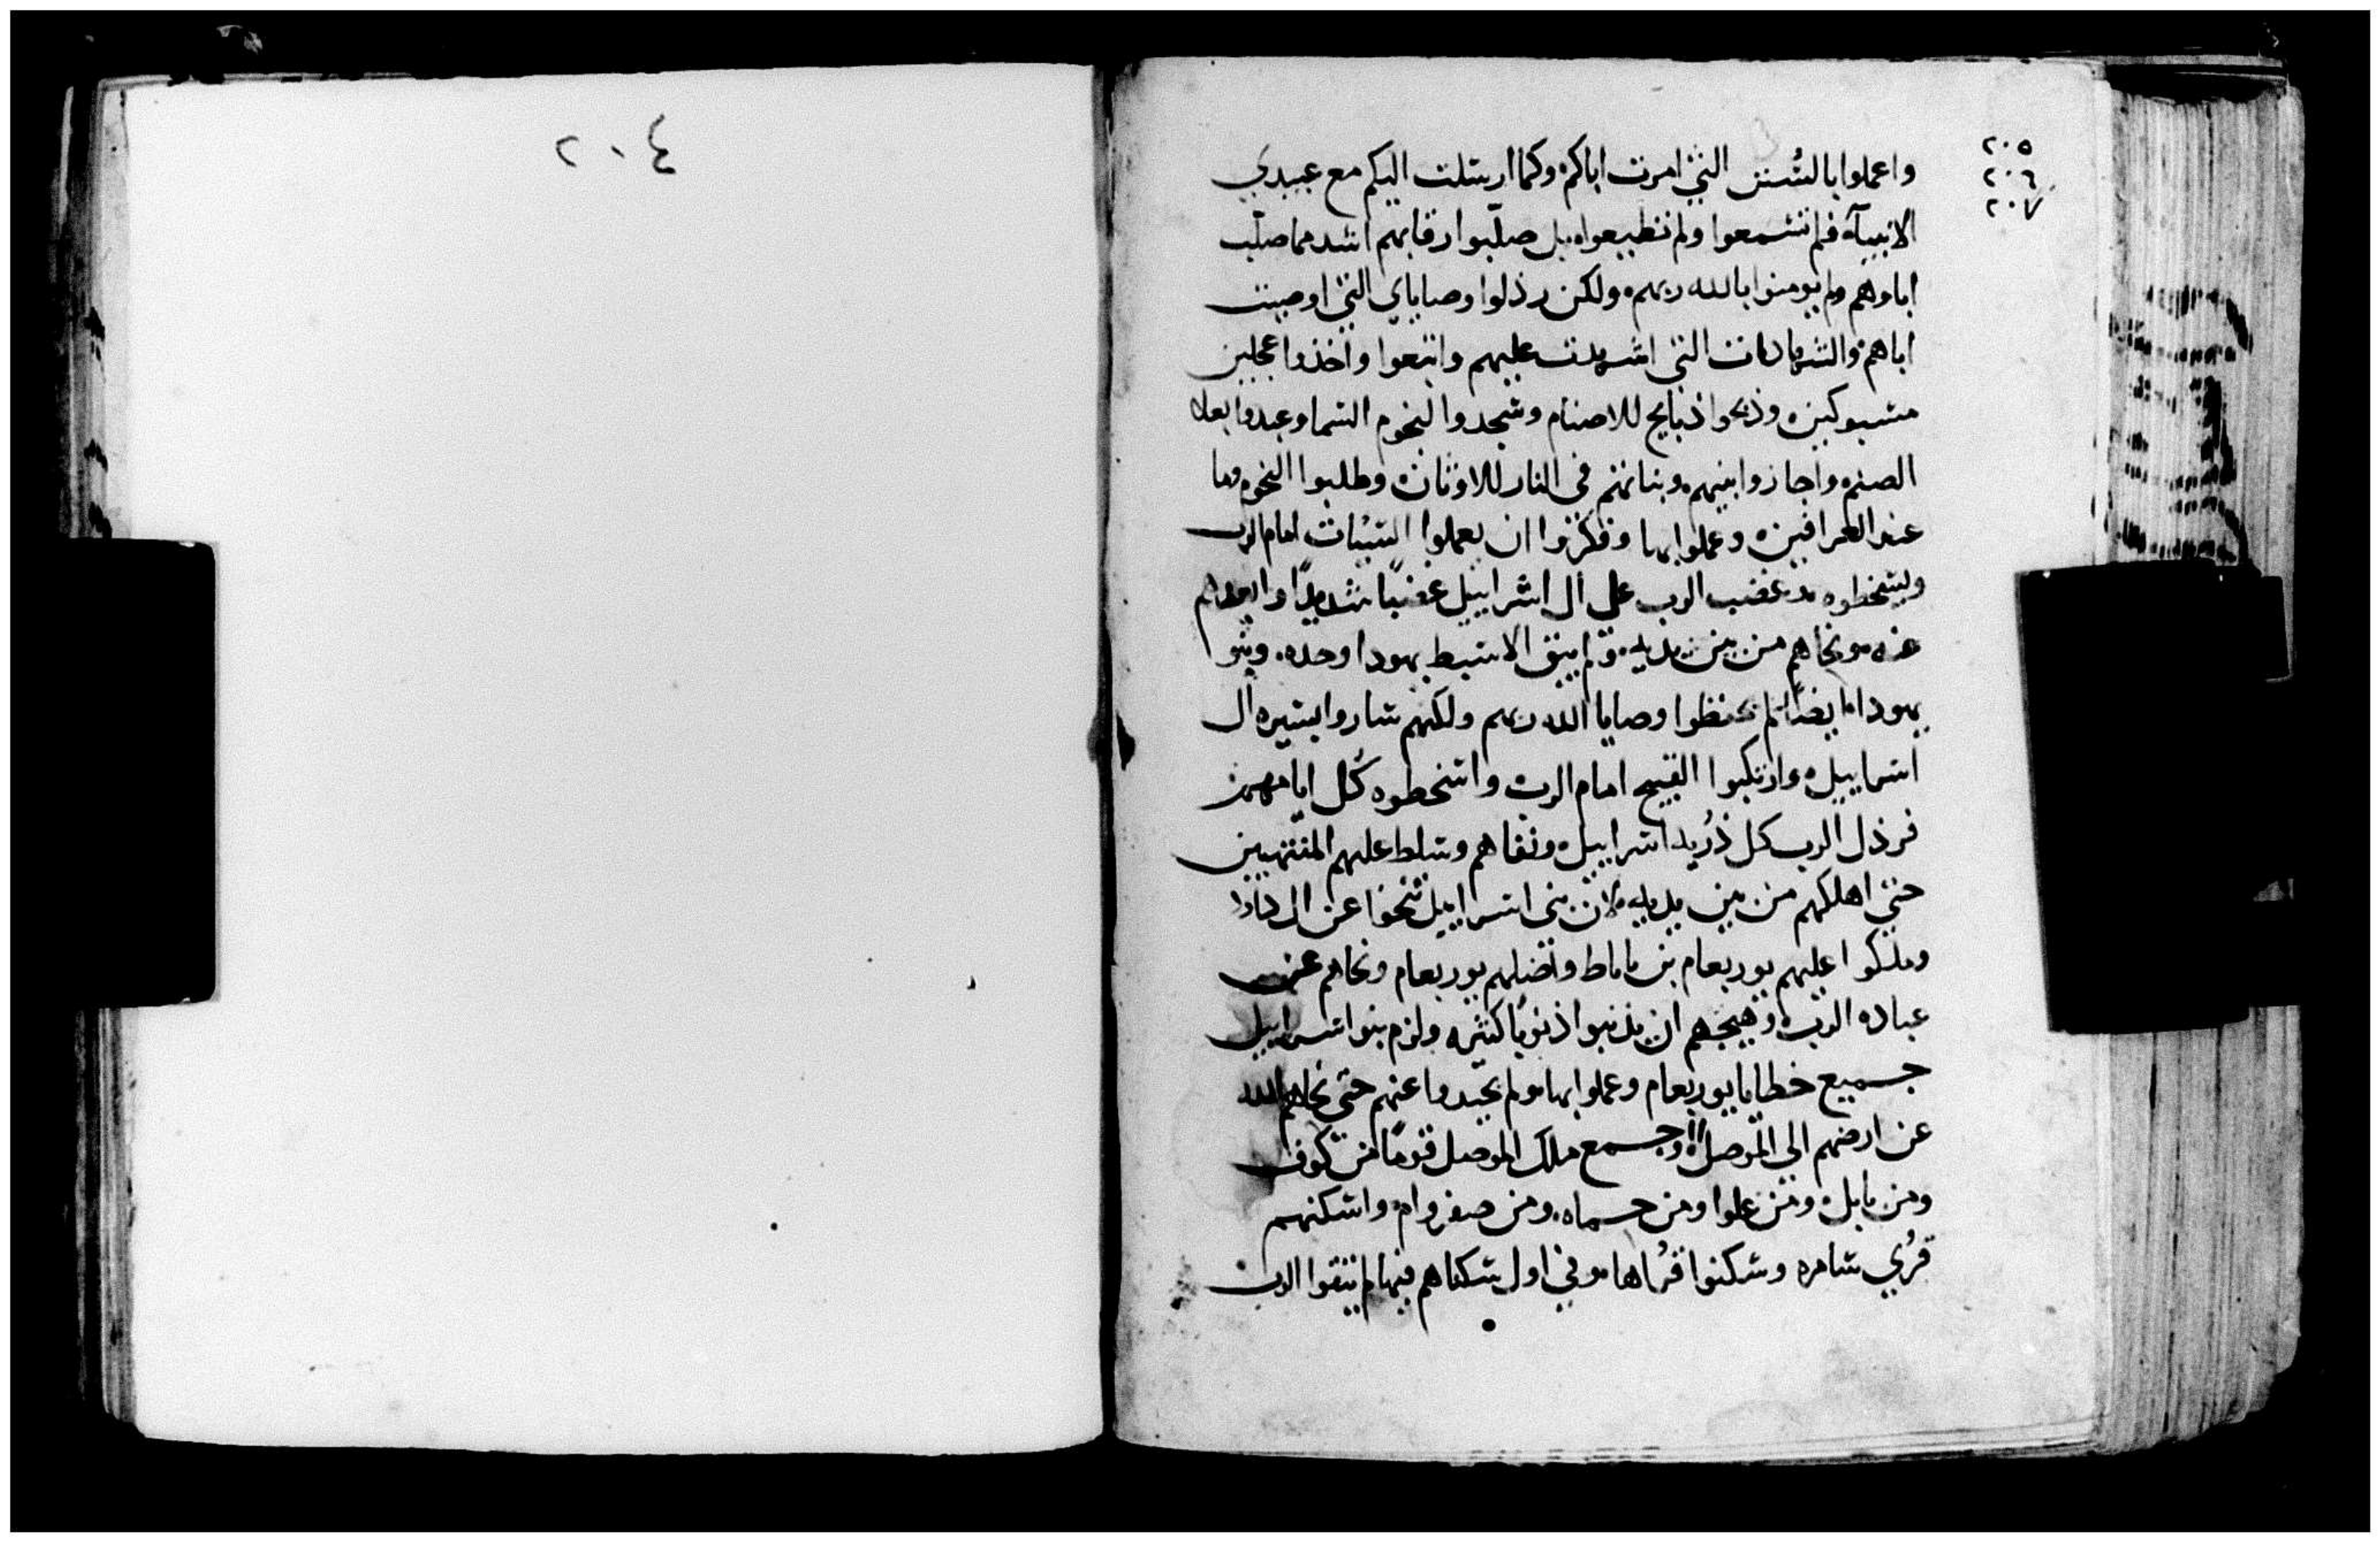 ٢٠٥
٢٠٦
٢٠٧
واعملوا بالسُنن التي امرت اباكم وكما ارسلت اليكم مع عبيدي
الانبيآء فلم تسمعوا ولم تطيعوا، بل صلّبوا رقابهم اشد مما صلّب
اباوهم ولم يومنوا بالله ربهم، ولكن رذلوا وصاياي التي اوصيت
اباهم والشهادات التي اشهدت عليهم واتبعوا واتخذوا عجلين
مسبوكين، وذبحوا ذبايح للاصنام وسجدوا لنجوم السما وعبدوا بعلا
الصنم، واجازوا بنيهم وبناتهم في النار للاوثان، وطلبوا النجوم وما
عند العرافين، وعملوا بها وفكروا ان يعملوا السيئات امام الرب
ويسخطوه، غضب الرب على ال اسراييل غضبًا شديدًا وابعدهم
عنه، ونحاهم من بين يديه، ولم يبق الا سبط يهودا وحده. وبنو
يهودا ايضًا لم يحفظوا وصايا الله ربهم ولكنهم ساروا بسيره ال
اسراييل، وارتكبوا القبيح امام الرب واسخطوه كل ايامهم،
فرذل الرب كل ذُريه اسراييل، ونفاهم وسلط عليهم المنتهبين
حتي اهلكهم من بين يديه، لان بني اسراييل تنحوا عن ال داود
وملكوا عليهم يوربعام بن ناباط واضلهم يوربعام ونحاهم عن
عباده الرب، وهيجهم ان يذنبوا ذنوبًا كثيره ولزم بنوا اسراييل
جميع خطايا يوربعام وعملوا بها، ولم يحيدوا عنهم حتى نحاهم الله
عن ارضهم الى الموصل، وجمع ملك الموصل قومًا من كوف
ومن بابل، ومن علوا ومن حماه، ومن صفروام، واسكنهم
قُري سامره وسكنوا قُراها، وفي اول سكناهم فيها لم يتقوا الرب
٢٠٤